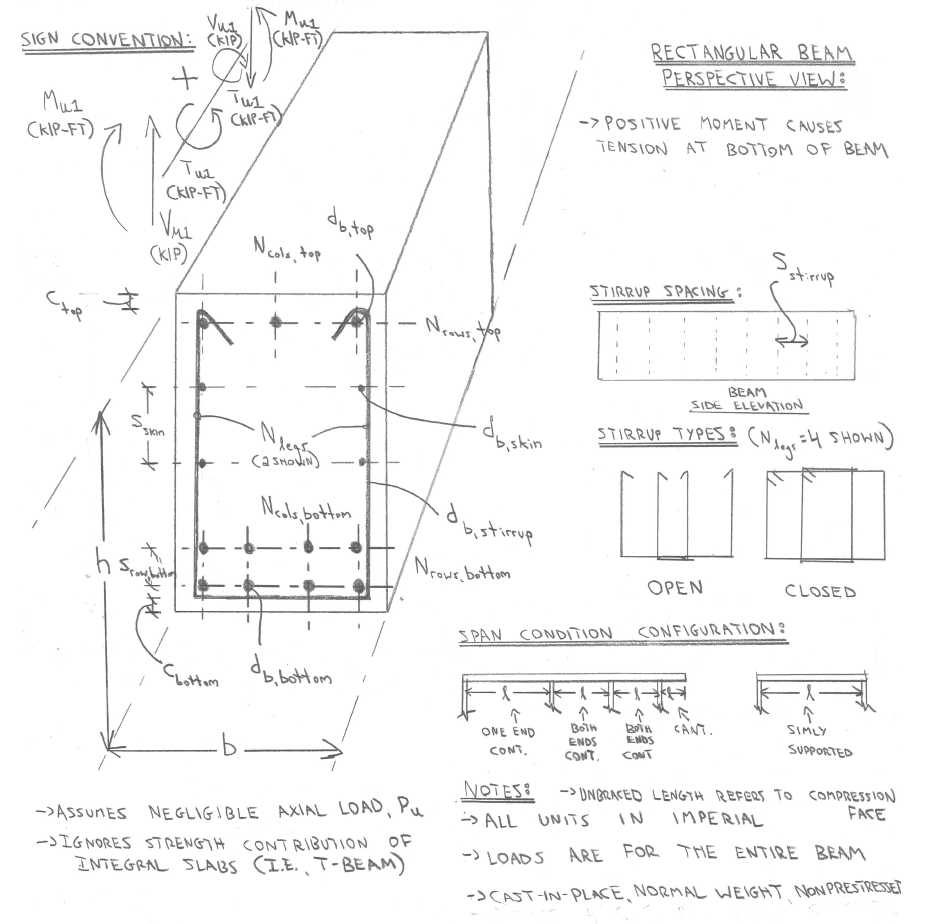 SIGN CONVENTION:
Vu1
(KIP)
Mu1
(KIP-FT)
+
Tu1
(KIP-FT)
Mu1
(KIP-FT)
Tu1
(KIP-FT)
Vu1
(KIP)
RECTANGULAR BEAM
PERSPECTIVE VIEW:
->POSITIVE MOMENT CAUSES
TENSION AT BOTTOM OF BEAM
db,top
Ncols,top
Ctop
Nrows,top
Sskin
Nlegs
(2 SHOWN)
db,skin
Ncols,bottom
db,stirrup
h
Srow,bottom
Nrows,bottom
Cbottom
db,bottom
b
Sstirrup
STIRRUP SPACING:
BEAM
SIDE ELEVATION
STIRRUP TYPES: (Nlegs=4 SHOWN)
OPEN
CLOSED
SPAN CONDITION CONFIGURATION:
l l l l l
ONE END
CONT.
BOTH
ENDS
CONT.
BOTH
ENDS
CONT
CANT.
SIMLY
SUPPORTED
->ASSUMES NEGLIGIBLE AXIAL LOAD, Pu
->IGNORES STRENGTH CONTRIBUTION OF
INTEGRAL SLABS (I.E., T-BEAM)
NOTES: ->UNBRACED LENGTH REFERS TO COMPRESSION
FACE
->ALL UNITS IN IMPERIAL
->LOADS ARE FOR THE ENTIRE BEAM
->CAST-IN-PLACE, NORMAL WEIGHT, NONPRESTRESSED